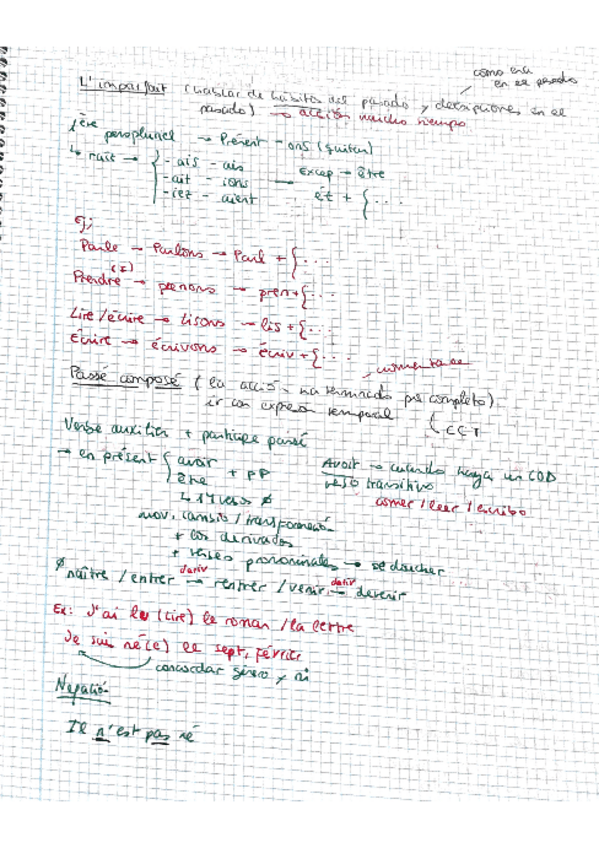 como era
en el pasado
L'imparfait (hablar de hábitos del pasado y descripciones en el
pasado) → acción mucho tiempo
1ère pers plural → Présent - ons (quitar)
↳ raíz → { - ais - ais
- ait - ions → Excep → être
- iez - aient ét + { ...
Ej:
Parle → Parlons → Parl + { ...
Prendre → prenons → pren + { ...
Lire / écrire → lisons → lis + { ...
Écrire → écrivons → écriv + { ...
Passé composé (la acción ha terminado por completo)
ir con expresión temporal (CCT
Verbe auxilier + participe passé
→ en présent { avoir
être + PP
Avoir → cuando haya un COD
verbo transitivo
comer / leer / escribo
↳ 14 verbs
mov, cambio / transformación
+ los derivados
+ verbes pronominales → se doucher
naître / entrer → deriv rentrer / venir → deriv devenir
Ex: J'ai lu (lire) le roman / la lettre
Je suis né(e) le sept, février
concordar género y nº
Negación
Il n'est pas né